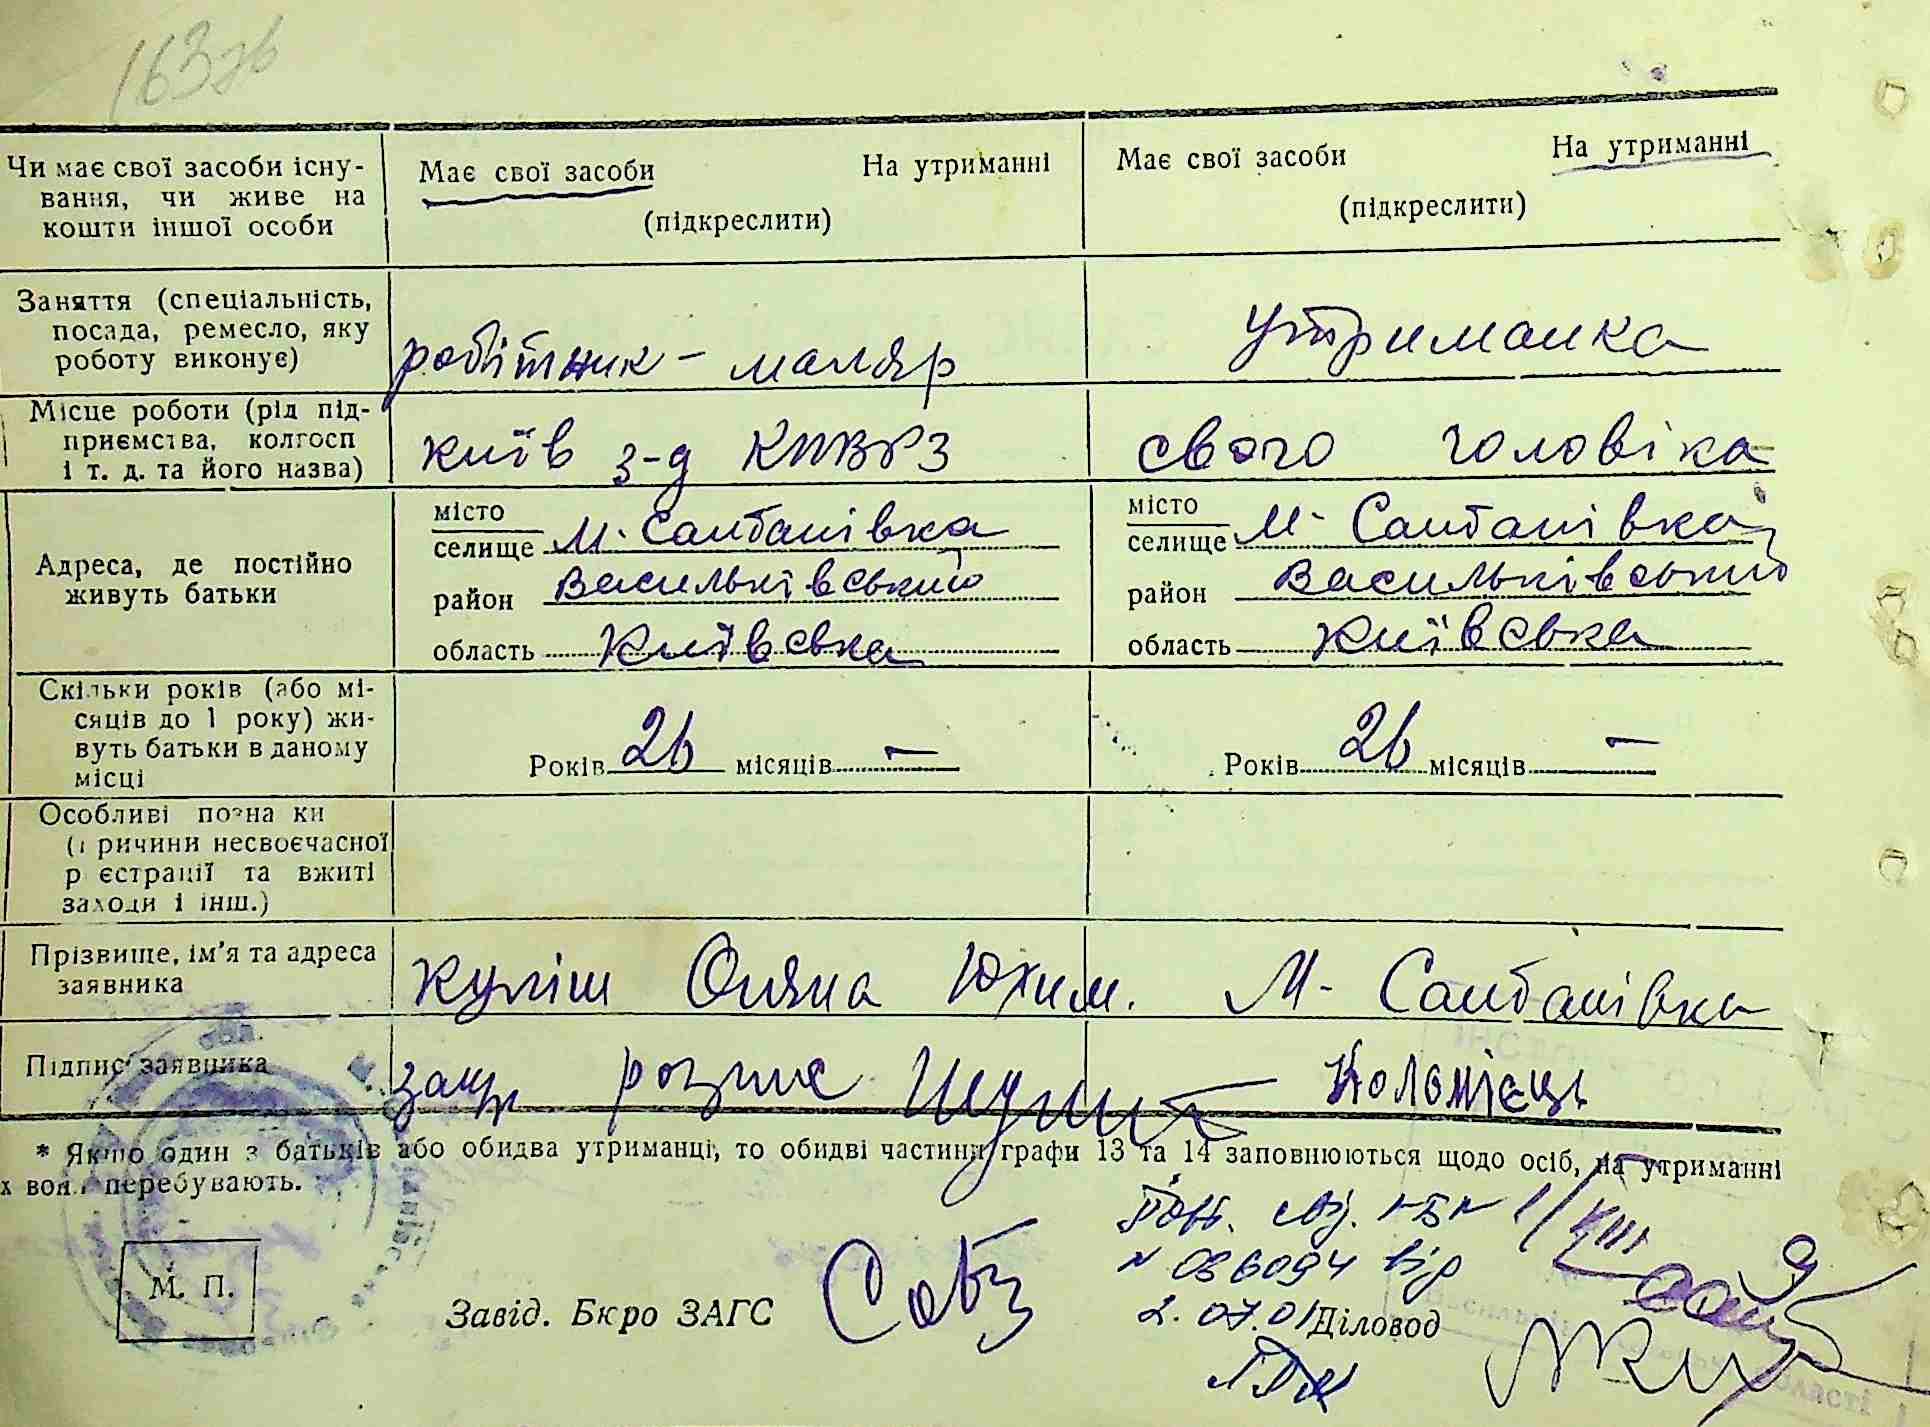 163
Чи має свої засоби існу-
вання, чи живе на
кошти іншої особи
Має свої засоби На утриманні
(підкреслити)
Має свої засоби На утриманні
(підкреслити)
Заняття (спеціальність,
посада, ремесло, яку
роботу виконує)
робітник - маляр
утриманка
Місце роботи (рід під-
приємства, колгосп
і т. д. та його назва)
Київ з-д КПВРЗ
свого чоловіка
Адреса, де постійно
живуть батьки
місто
селище м. Салтанівка
район Васильківський
область Київська
місто
селище м. Салтанівка
район Васильківський
область Київська
Скільки років (або мі-
сяців до 1 року) жи-
вуть батьки в даному
місці
Років 26 місяців —
Років 26 місяців —
Особливі познаки
(причини несвоєчасної
реєстрації та вжиті
заходи і інш.)
Прізвище, ім'я та адреса
заявника
Куліш Ояна Юхим. М. Салтанівка
Підпис заявника
Коломієць
* Якщо один з батьків або обидва утриманці, то обидві частини графи 13 та 14 заповнюються щодо осіб, на утриманні
х вони перебувають.
М. П.
Завід. Бюро ЗАГС
N 086094 від
2.07.01
Діловод